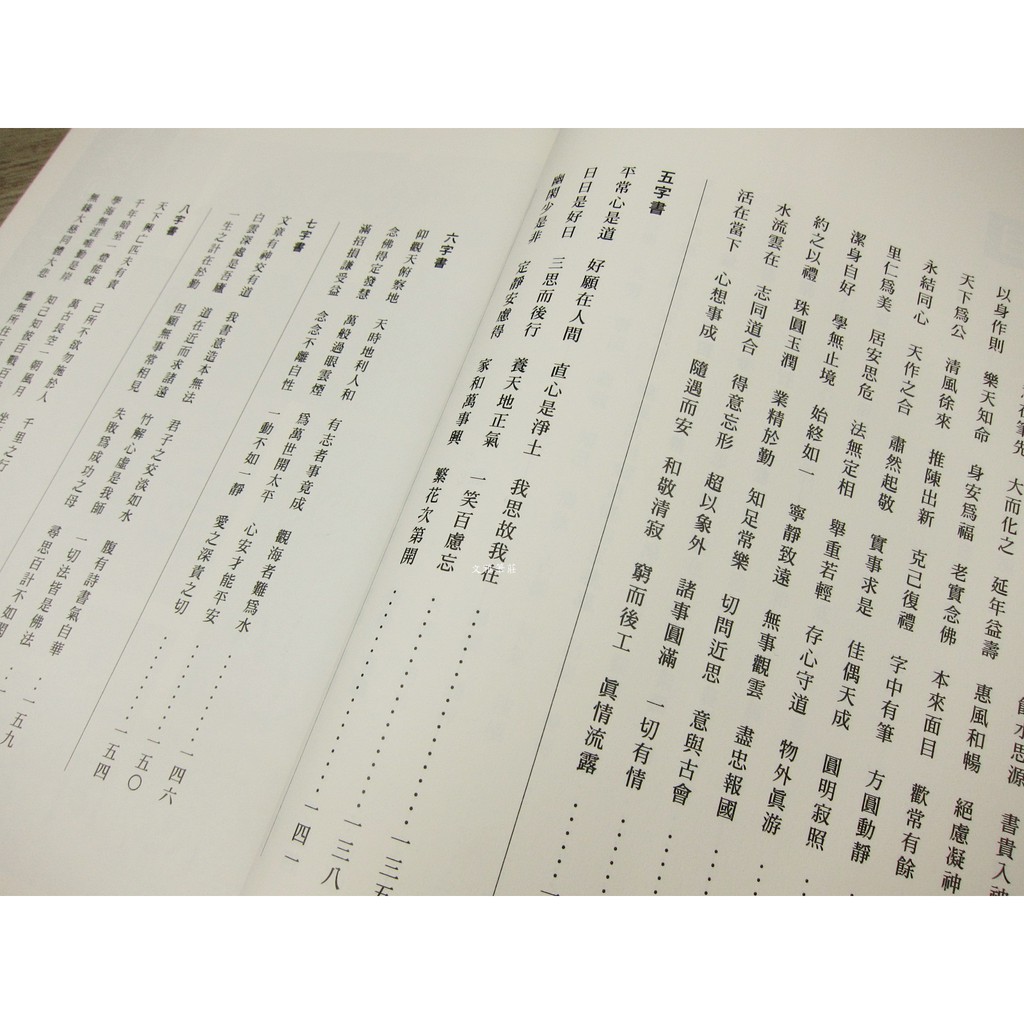 在筆先 大而化之 延年益壽 惠風和暢 絕慮凝神
以身作則 樂天知命 身安爲福 老實念佛 本來面目 歡常有餘
天下爲公 清風徐來 推陳出新 克己復禮 字中有筆 方圓動靜
永結同心 天作之合 肅然起敬 實事求是 佳偶天成 圓明寂照
里仁爲美 居安思危 法無定相 舉重若輕 存心守道 物外眞游
潔身自好 學無止境 始終如一 寧靜致遠 無事觀雲 盡忠報國
約之以禮 珠圓玉潤 業精於勤 知足常樂 切問近思 意與古會
水流雲在 志同道合 得意忘形 超以象外 諸事圓滿 一切有情
活在當下 心想事成 隨遇而安 和敬清寂 窮而後工 眞情流露
五字書
平常心是道 好願在人間 直心是淨土 我思故我在 一三五
日日是好日 三思而後行 養天地正氣 一笑百慮忘 一三八
幽閑少是非 定靜安慮得 家和萬事興 繁花次第開 一四一
六字書
仰觀天俯察地 天時地利人和 有志者事竟成 觀海者難爲水 一四六
念佛得定發慧 萬般過眼雲煙 爲萬世開太平 心安才能平安 一五〇
滿招損謙受益 念念不離自性 一動不如一靜 愛之深責之切 一五四
七字書
文章有神交有道 我書意造本無法 君子之交淡如水 腹有詩書氣自華 一五九
白雲深處是吾廬 道在近而求諸遠 竹解心虛是我師 一切法皆是佛法
一生之計在於勤 但願無事常相見 失敗爲成功之母 尋思百計不如閑
八字書
天下興亡匹夫有責 己所不欲勿施於人 千里之行
千年暗室一燈能破 萬古長空一朝風月
學海無涯唯勤是岸 知己知彼百戰百
無緣大慈同體大悲 應無所住